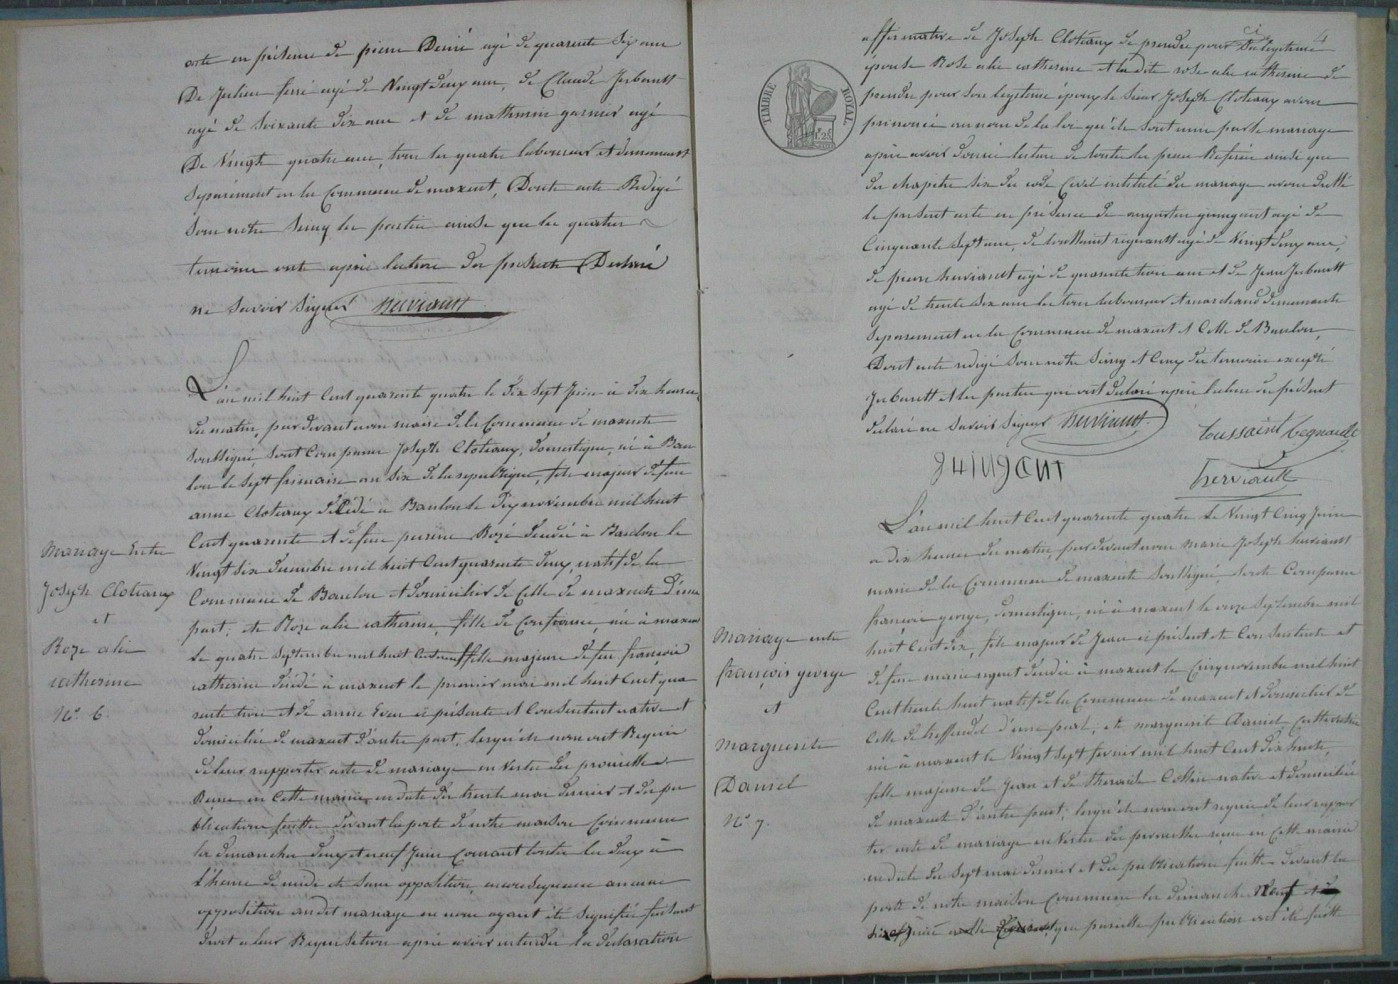 acte en présence de pierre Desiré agé de quarente Six ans
De Julien ferré agé de Vingt deux ans, de Claude Jerbault
agé de Soixante dix ans et de mathurin garnier agé
De Vingt quatre ans, tous les quatre laboureurs et demeurants
Separément en la Commune de maxent, Dont acte Redigé
Sous notre Seing les parties ainsi que les quatres
temoins ont après lecture du présente Declaré
ne Savoir Signer Herviault
L'an mil huit Cent quarente quatre le dix Sept Juin à dix heures
du matin par devant nous maire de la Commune de maxent
Soussigné Sont Comparus Joseph Cloteaux, domestique, né à Bau
lon le Sept frimaire an Six de la republique, fils majeur de feu
anne Cloteaux Décédé à Baulon le Dix novembre mil huit
Cent quarente et de feue perrine Rozé décedée à Baulon le
Vingt Six decembre mil huit Cent quarente deux, natif de la
Commune de Baulon et domicilier de Celle de maxent D'une
part, et Roze alie catherine, fille de Confiance, née à maxen
le quatre Septembre mil huit Cent neuf fille majeure de feu françois
catherine décédé à maxent le premier mai mil huit Cent qua
rente trois et de anne Even ci présente et Consentent native et
domiciliée de maxent D'autre part, lesquels nous ont Requis
de leurs rapporter acte de mariage en Vertu des promesses
Reçues en Cette mairie en date du trente mai dernier et des pu
blications faittes devant la porte de notre maison Commune
les dimanches deux et neuf Juin Courant toutes les deux à
l'heure de midi et Sans opposition, encore Sequence aucune
opposition au dit mariage ne nous ayant été Signifiée faisant
droit à leur Requisition après avoir entendu la declaration
Mariage Entre
Joseph Cloteaux
et
Roze alie
catherine
N° 6.
4
affirmative de Joseph Cloteaux de prendre pour Sa legitime
épouse Rose alie catherine et la dite rose alie catherine de
prendre pour Son legitime époux le Sieur Joseph Cloteaux avons
prononcé au nom de la loi qu'ils Sont unis par le mariage
après avoir donné lecture de toutes les pieces Relatées ainsi que
du chapitre Six du code Civil intitulé du mariage avons dressé
le présent acte en présence de augustin guingant agé de
Cinquante Sept ans, de toussaint regnault agé de Vingt deux ans,
de pierre herviault agé de quarente trois ans et de Jean Jerbault
agé de trente Six ans les tous laboureurs et marchand demeurants
Separement en la Commune de maxent et Celle de Baulon,
Dont acte redigé Sous notre Seing et Ceux des temoins excepté
Jerbault et les parties qui ont declaré après lecture du présent
declaré ne Savoir Signer Herviault
toussaint regnault
guingant
herviault
TIMBRE ROYAL
L'an mil huit Cent quarente quatre le Vingt Cinq Juin
à dix heures du matin par devant nous Marie Joseph herviault
maire de la Commune de maxent Soussigné Sont Comparus
françois george, domestique, né à maxent le onze Septembre mil
huit Cent dix, fils majeur de Jean ci présent et Consentent et
de feue marie décedée à maxent le Cinq novembre mil huit
Cent trente huit natif de la Commune de maxent et domicilier de
Celle de treffendel d'une part, et marguerite Daniel
née à maxent le Vingt Sept fevrier mil huit Cent dix huit,
fille majeure de Jean et de therese Collin native et domiciliée
de maxent d'autre part, lesquels nous ont requis de leur rappor
ter acte de mariage en Vertu des promesses reçues en Cette mairie
en date du Sept mai dernier et des publications faittes devant la
porte de notre maison Commune les dimanches Neuf et
Juin que pareille publication ont été faitte
Mariage entre
françois george
et
marguerite
Daniel
N° 7.